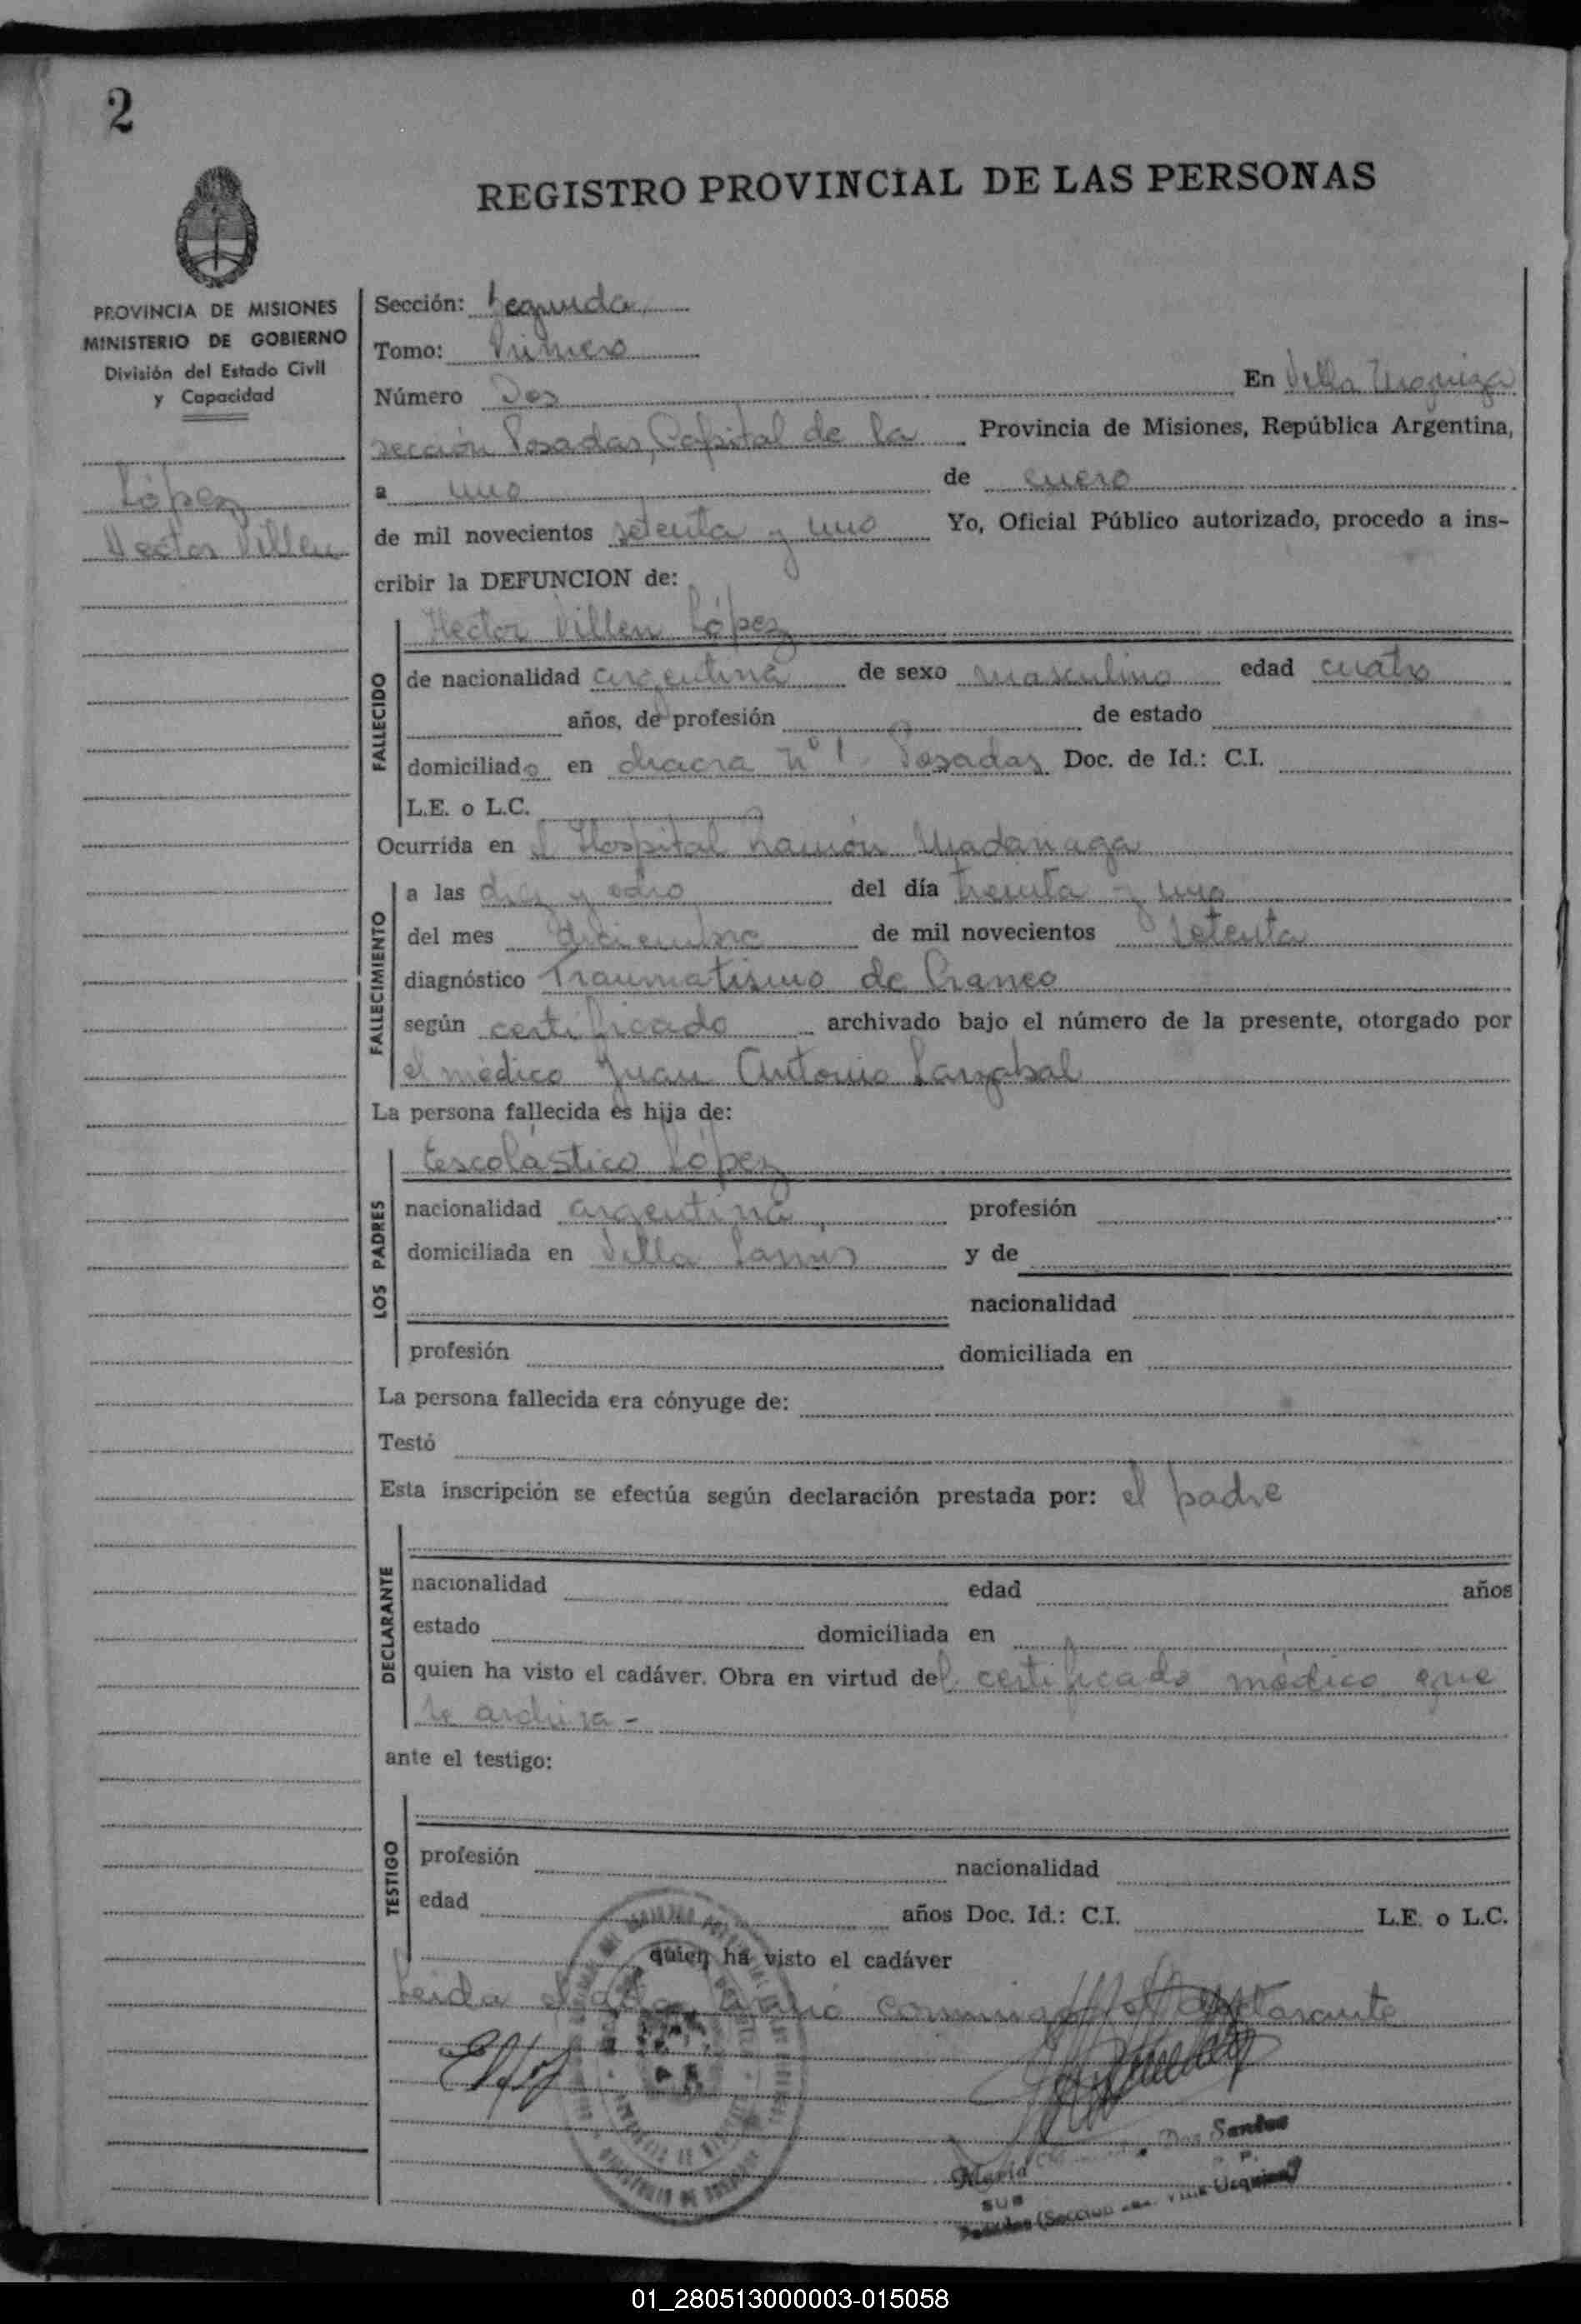 2
REGISTRO PROVINCIAL DE LAS PERSONAS
PROVINCIA DE MISIONES
MINISTERIO DE GOBIERNO
División del Estado Civil
y Capacidad
López
Hector Villen
Sección: Segunda
Tomo: Primero
Número Dos En Villa Urquiza
sección Posadas, Capital de la Provincia de Misiones, República Argentina,
a uno de enero
de mil novecientos setenta y uno Yo, Oficial Público autorizado, procedo a ins-
cribir la DEFUNCION de:
FALLECIDO
Hector Villen López
de nacionalidad argentina de sexo masculino edad cuatro
años, de profesión de estado
domiciliado en chacra Nº 1. Posadas Doc. de Id.: C.I.
L.E. o L.C.
Ocurrida en el Hospital Ramón Madariaga
FALLECIMIENTO
a las diez y ocho del día treinta y uno
del mes diciembre de mil novecientos setenta
diagnóstico Traumatismo de Craneo
según certificado archivado bajo el número de la presente, otorgado por
el médico Juan Antonio
La persona fallecida es hija de:
LOS PADRES
Escolástico López
nacionalidad argentina profesión
domiciliada en Villa Lanus y de
nacionalidad
profesión domiciliada en
La persona fallecida era cónyuge de:
Testó
Esta inscripción se efectúa según declaración prestada por: el padre
DECLARANTE
nacionalidad edad años
estado domiciliada en
quien ha visto el cadáver. Obra en virtud del certificado médico que
se archiva -
ante el testigo:
TESTIGO
profesión nacionalidad
edad años Doc. Id.: C.I. L.E. o L.C.
quien ha visto el cadáver
Leida el acta,
María Dos Santos
SUB
Posadas (Sección Villa Urquiza)
01_280513000003-015058